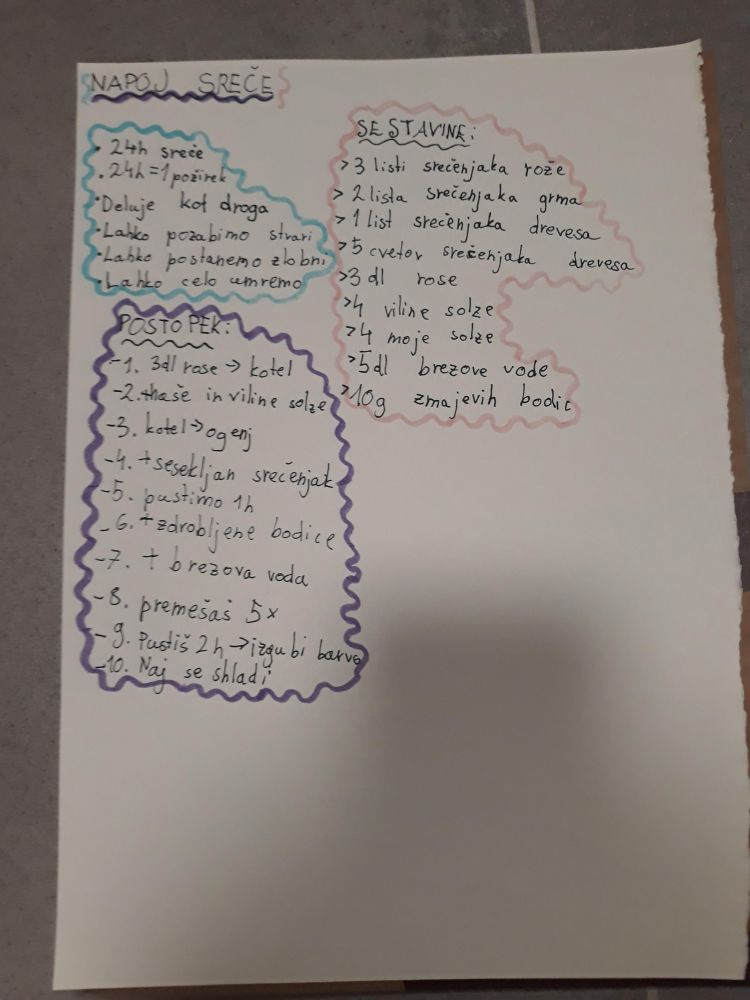 NAPOJ SREČE
• 24h sreče
• 24h = 1 požirek
• Deluje kot droga
• Lahko pozabimo stvari
• Lahko postanemo zlobni
• Lahko celo umremo
SESTAVINE:
> 3 listi srečenjaka rože
> 2 lista srečenjaka grma
> 1 list srečenjaka drevesa
> 5 cvetov srečenjaka drevesa
> 3 dl rose
> 4 viline solze
> 4 moje solze
> 5dl brezove vode
> 10g zmajevih bodic
POSTOPEK:
- 1. 3dl rose → kotel
- 2. + naše in viline solze
- 3. kotel → ogenj
- 4. + sesekljan srečenjak
- 5. pustimo 1h
- 6. + zdrobljene bodice
- 7. + brezova voda
- 8. premešaš 5x
- 9. Pustiš 2h → izgubi barvo
- 10. Naj se shladi